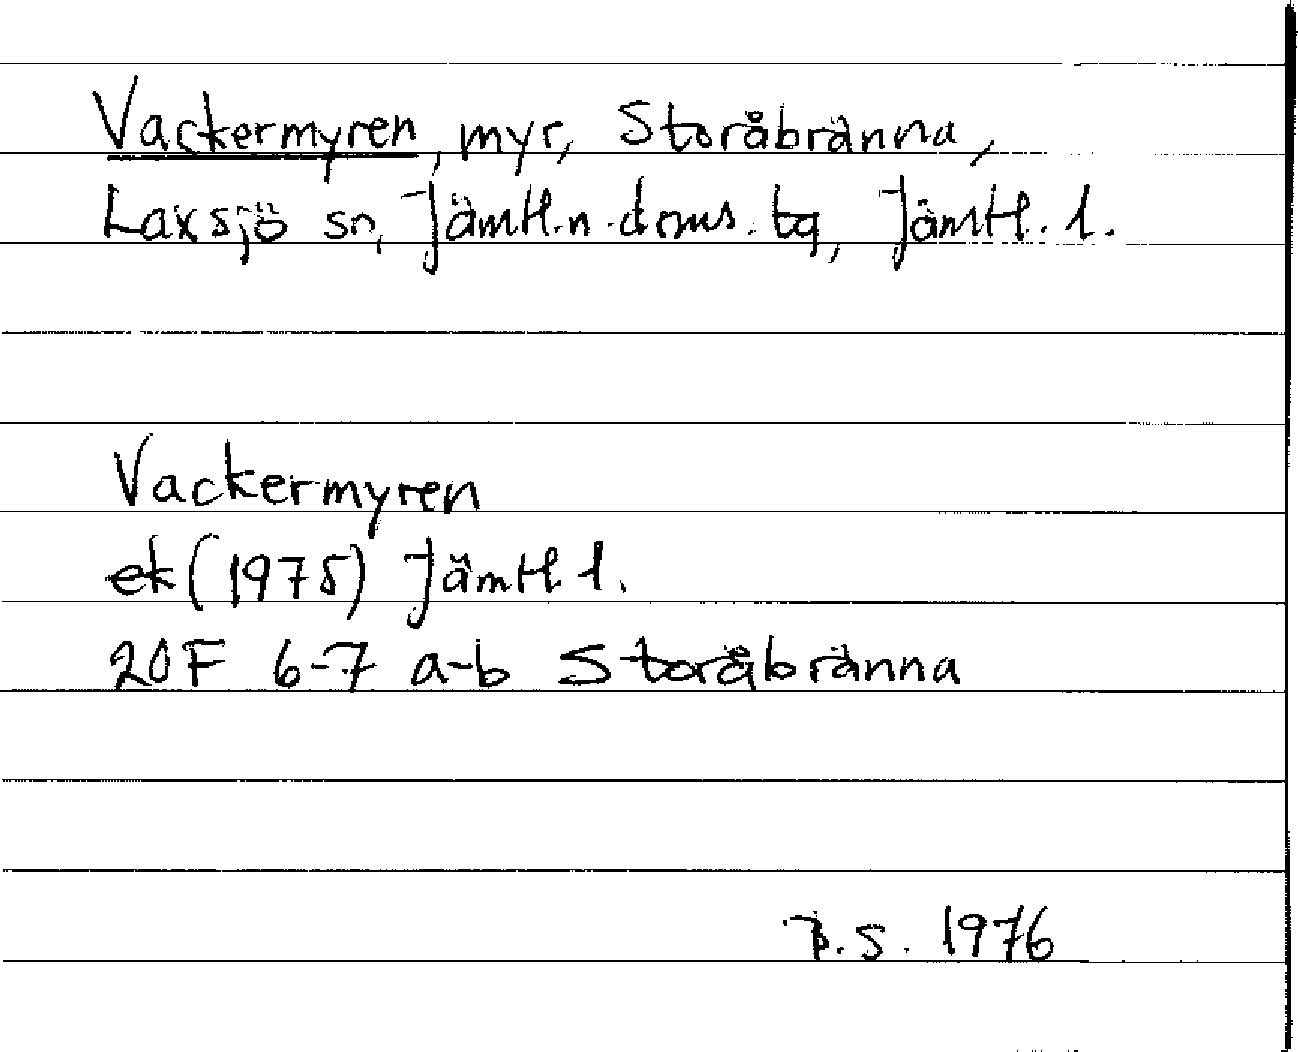 Vackermyren, myr, Storåbränna,
Laxsjö sn, Jämtl.n.doms.tg, Jämtl. l.
Vackermyren
ek (1975) Jämtl. l.
20F 6-7 a-b Storåbränna
S. 1976